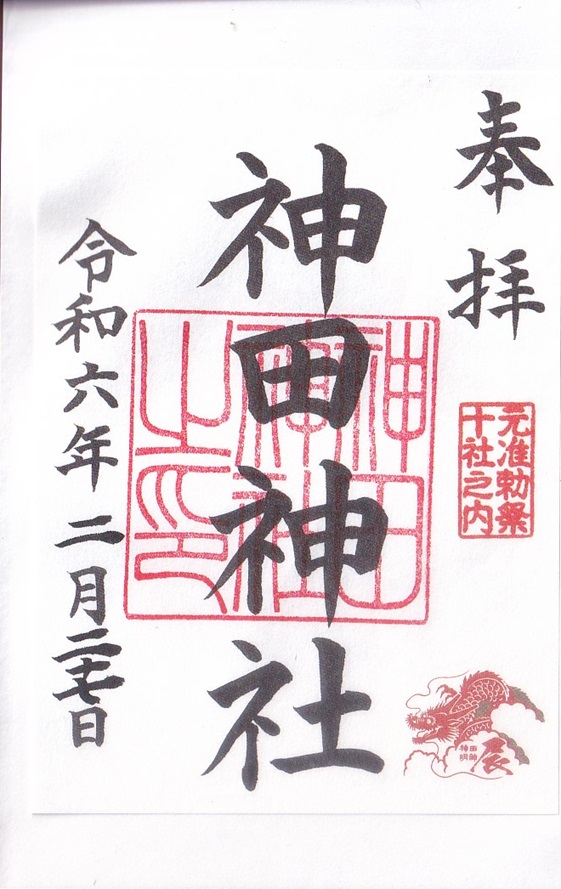 奉拝
元准勅祭
十社之内
神田神社
神田
神社
之印
令和六年二月二十七日
辰
神田明神